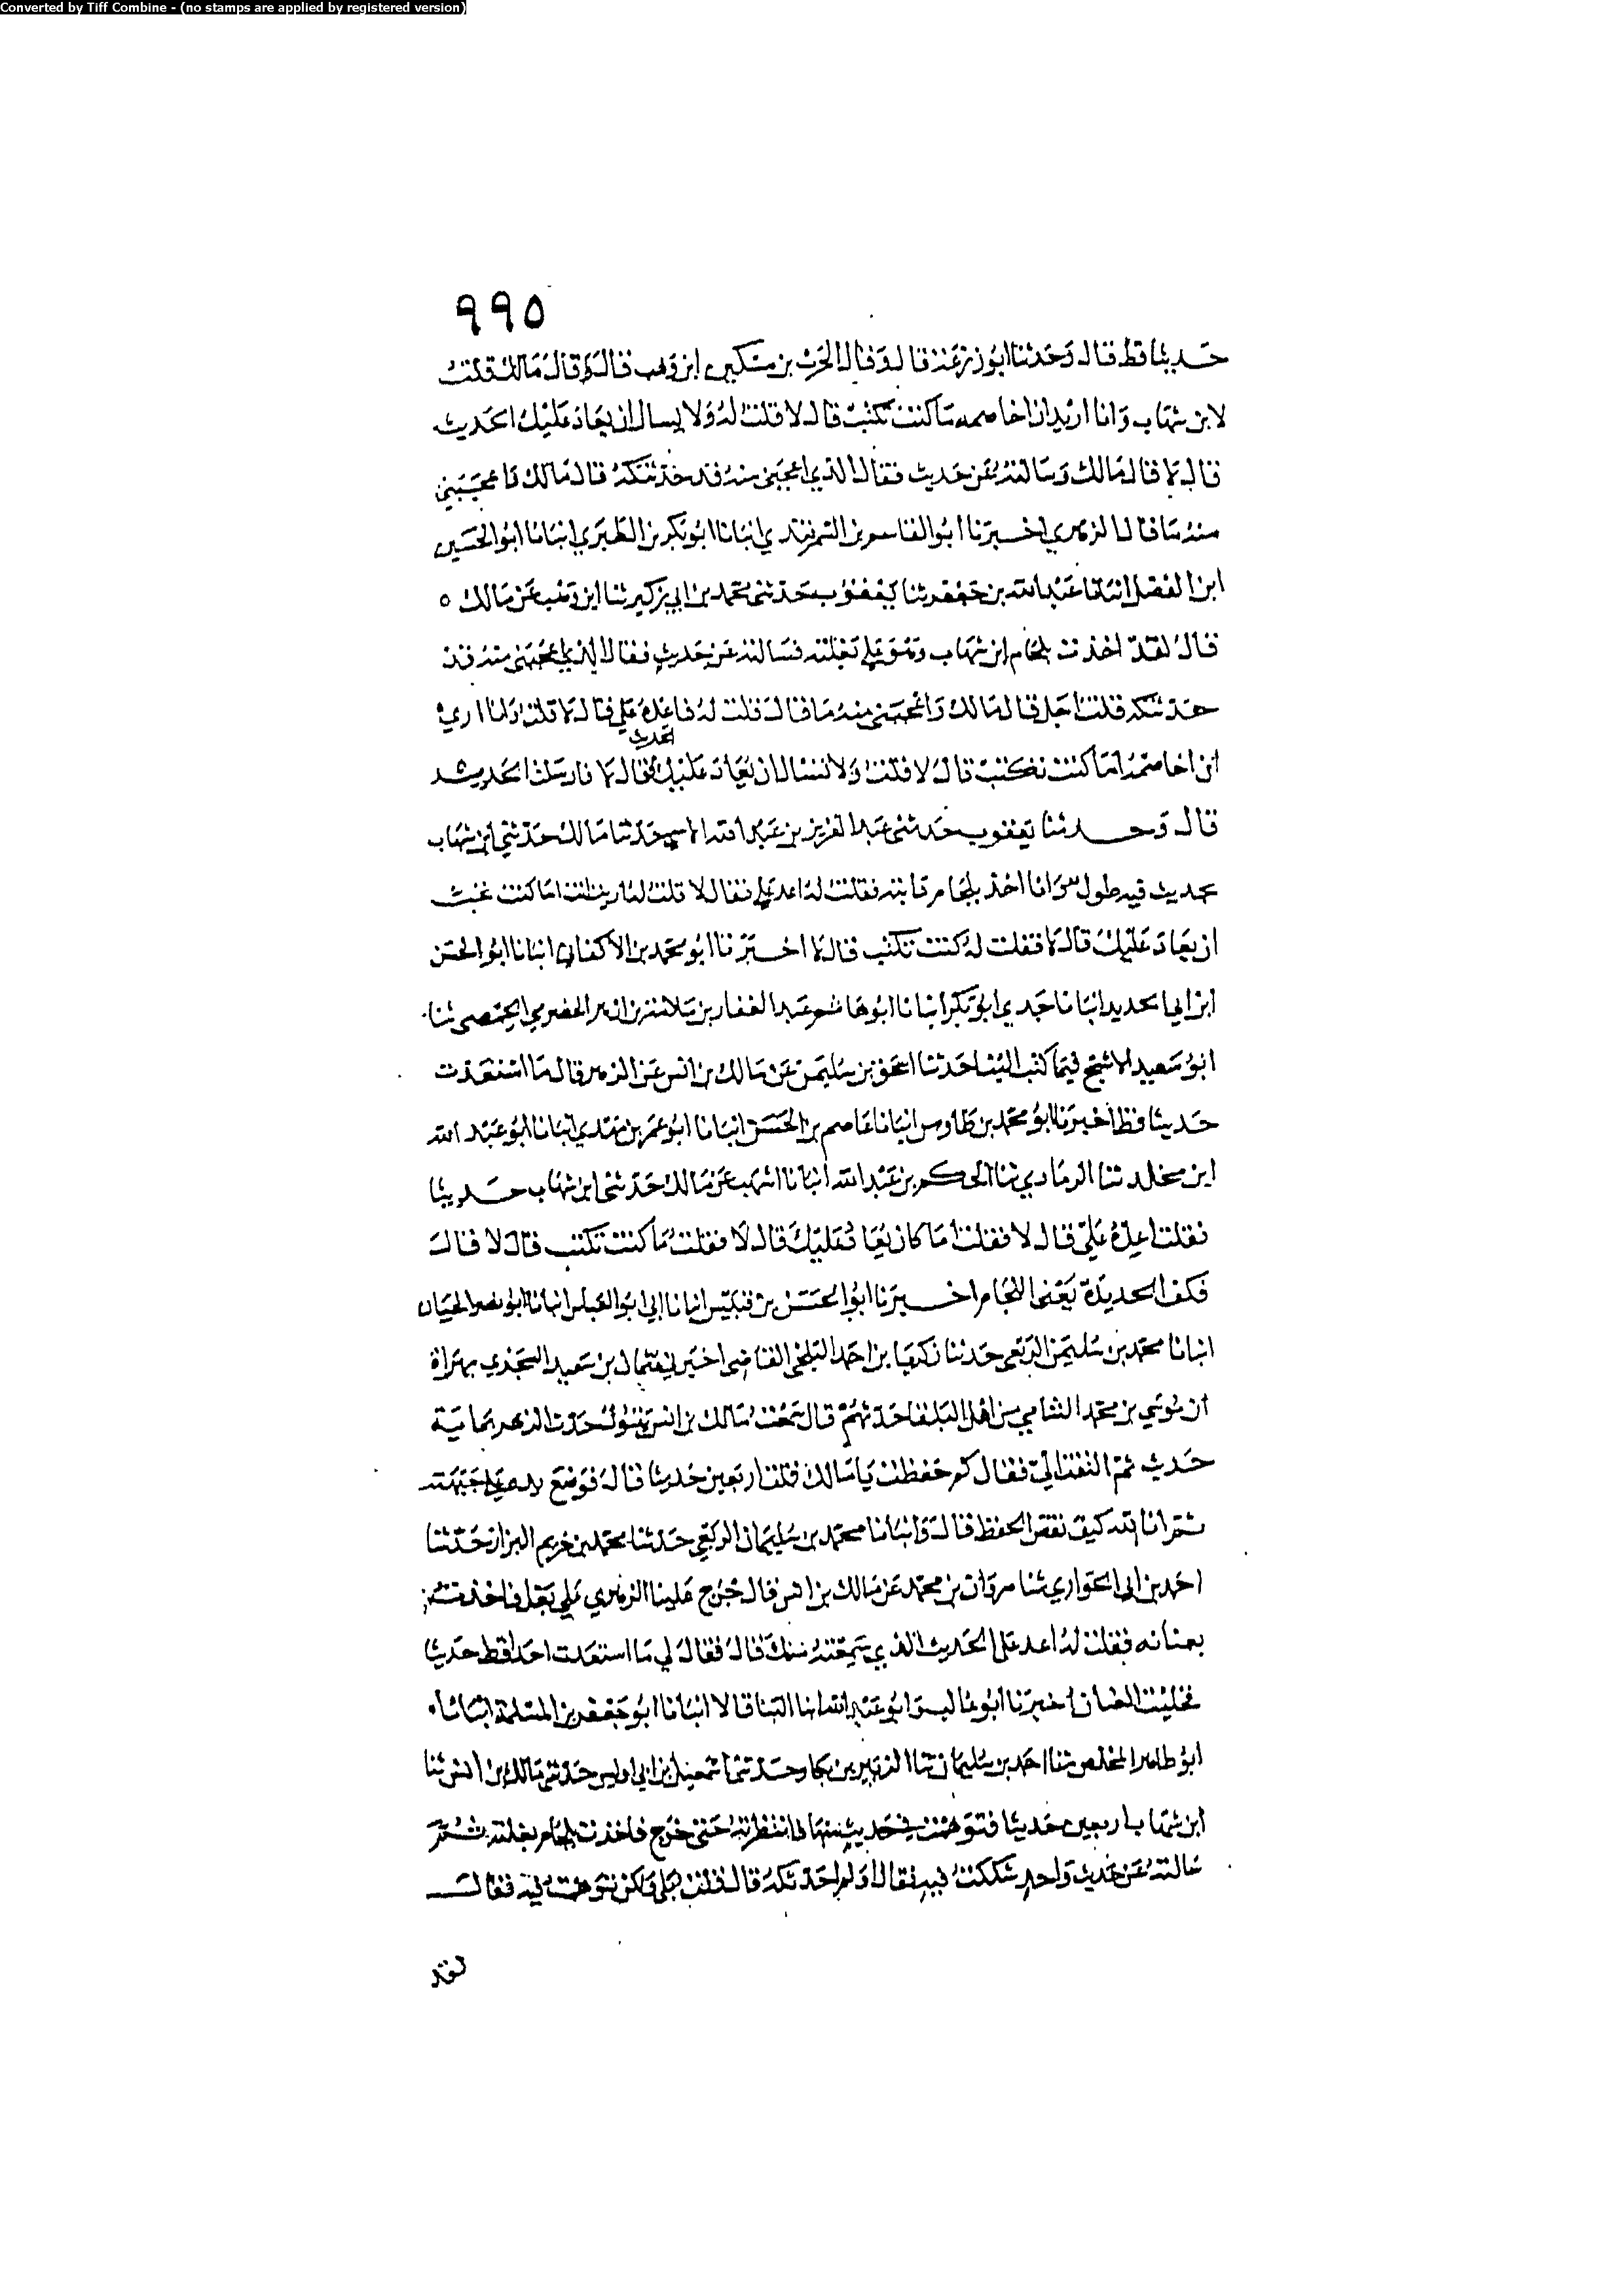 Converted by Tiff Combine - (no stamps are applied by registered version)
٩٩٥
حديثا قط قال وحدثنا ابو زرعة قال وقال الحرث بن مسكين ابن وهب قال قال مالك قلت
لابن شهاب وانا اريد ان اخاصمه ما كنت تكتب قال لا قلت له ولا يسال ان يعاد عليك الحديث
قال لا قال مالك وسالته عن حديث فقال الذي اعجبني منه قد حدثتكه قال مالك فاعجبني
منه ما قال الزهري اخبرنا ابو القاسم بن السمرقندي انبانا ابو بكر بن الطبري انبانا ابو الحسين
ابن الفضل انبانا عبد الله بن جعفر ثنا يعقوب حدثني محمد بن ابي زكير ثنا ابن وهب عن مالك ٥
قال لقد اخذت بلجام ابن شهاب وهو على بغلته فسالته عن حديث فقال الذي اعجبني منه قد
حدثتكه قلت اجل قال مالك واعجبني منه ما قال قلت له فاعده علي قال لا قلت وانا اريد
ان اخاصمه اما كنت تكتب قال لا قلت ولا تسال ان يعاد عليك الحديث قال لا فارسلنا الحديث
قال وحدثنا يعقوب حدثني عبد العزيز بن عبد الله حدثنا مالك حدثني ابن شهاب
بحديث فيه طول وانا اخذ بلجام دابته فقلت له اعد علي فقال لا قلت له اما كنت تحب
ان يعاد عليك قال لا فقلت له كنت تكتب قال لا اخبرنا ابو محمد بن الاكفاني انبانا ابو الحسن
ابن ابي الحديد انبانا جدي ابو بكر انبانا ابو هاشم عبد الغفار بن سلامة الحضرمي الحمصي ثنا
ابو سعيد الاشج فيما كتب الينا حدثنا اسحق بن سليمن عن مالك بن انس عن الزهري قال ما استعدت
حديثا قط اخبرنا ابو محمد بن طاوس انبانا عاصم بن الحسن انبانا ابو عمر بن مهدي انبانا ابو عبد الله
ابن مخلد ثنا الرمادي ثنا الحكم بن عبد الله انبانا اشهب عن مالك حدثني ابن شهاب حديثا
فقلت اعده علي قال لا فقلت اما كان يعاد عليك قال لا فقلت اما كنت تكتب قال لا قال
فكف الحديدة يعني اللجام اخبرنا ابو الحسن بن قبيس انبانا ابي ابو العباس انبانا ابو نصر الحبان
انبانا محمد بن سليمن الربعي حدثنا زكريا بن احمد البلخي القاضي اخبرني عثمان بن سعيد السجزي بهراة
ان موسى بن محمد الشامي من اهل البلقا حدثهم قال سمعت مالك بن انس يقول حدث الزهري بماية
حديث ثم التفت الي فقال كم حفظت يا مالك قلت اربعين حديثا قال فوضع يده على جبهته
ثم قال انا لله كيف نقص الحفظ قال وانبانا محمد بن سليمان الربعي حدثنا محمد بن خريم البزاز حدثنا
احمد بن ابي الحواري ثنا مروان بن محمد عن مالك بن انس قال خرج علينا الزهري على بغل فاخذت
بعنانه فقلت له اعد علي الحديث الذي سمعته منك قال فقال لي ما استعدت احدا قط حديثا
فخليت العنان اخبرنا ابو غالب وابو عبد الله ابنا البنا قالا انبانا ابو جعفر بن المسلمة انبانا
ابو طاهر المخلص ثنا احمد بن سليمان ثنا الزبير بن بكار حدثني اسمعيل بن ابي اويس حدثني مالك بن انس ثنا
ابن شهاب باربعين حديثا فتوهمت في حديث منها فانتظرته حتى خرج فاخذت بلجام بغلته ثم
سالته عن حديث واحد شككت فيه فقال اولم احدثكه قال قلت بلى ولكن توهمت فيه فقال
لقد